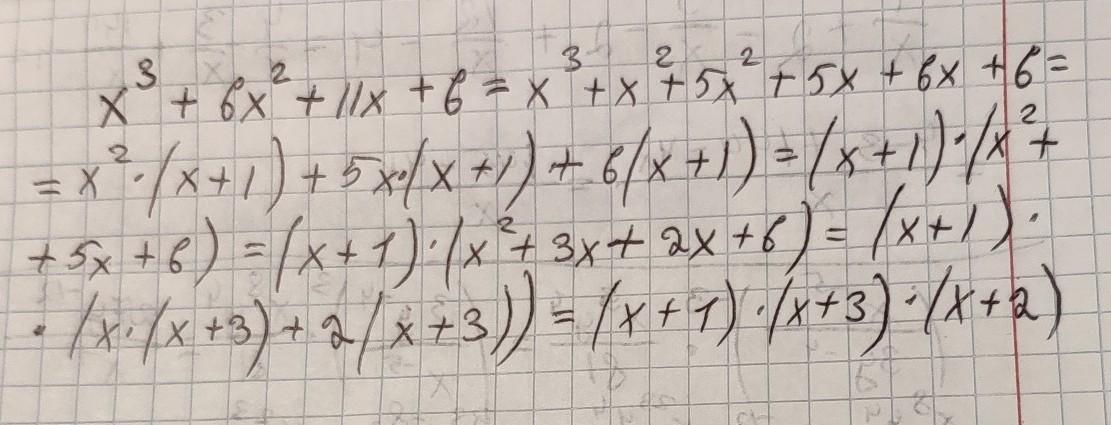 x³ + 6x² + 11x + 6 = x³ + x² + 5x² + 5x + 6x + 6 =
= x² · (x + 1) + 5x · (x + 1) + 6(x + 1) = (x + 1) · (x² +
+ 5x + 6) = (x + 1) · (x² + 3x + 2x + 6) = (x + 1) ·
· (x · (x + 3) + 2(x + 3)) = (x + 1) · (x + 3) · (x + 2)